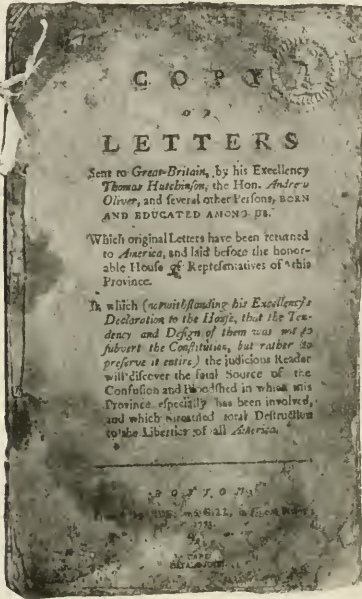 COPY
OF
LETTERS
Sent to Great-Britain, by his Excellency
Thomas Hutchinson, the Hon. Andrew
Oliver, and several other Persons, BORN
AND EDUCATED AMONG US.
Which original Letters have been returned
to America, and laid before the honor-
able House of Representatives of this
Province.
In which (notwithstanding his Excellency's
Declaration to the House, that the Ten-
dency and Design of them was not to
subvert the Constitution, but rather to
preserve it entire) the judicious Reader
will discover the fatal Source of the
Confusion and Bloodshed in which this
Province especially has been involved,
and which threatned total Destruction
to the Liberties of all America.
BOSTON:
GILL, in
1773.